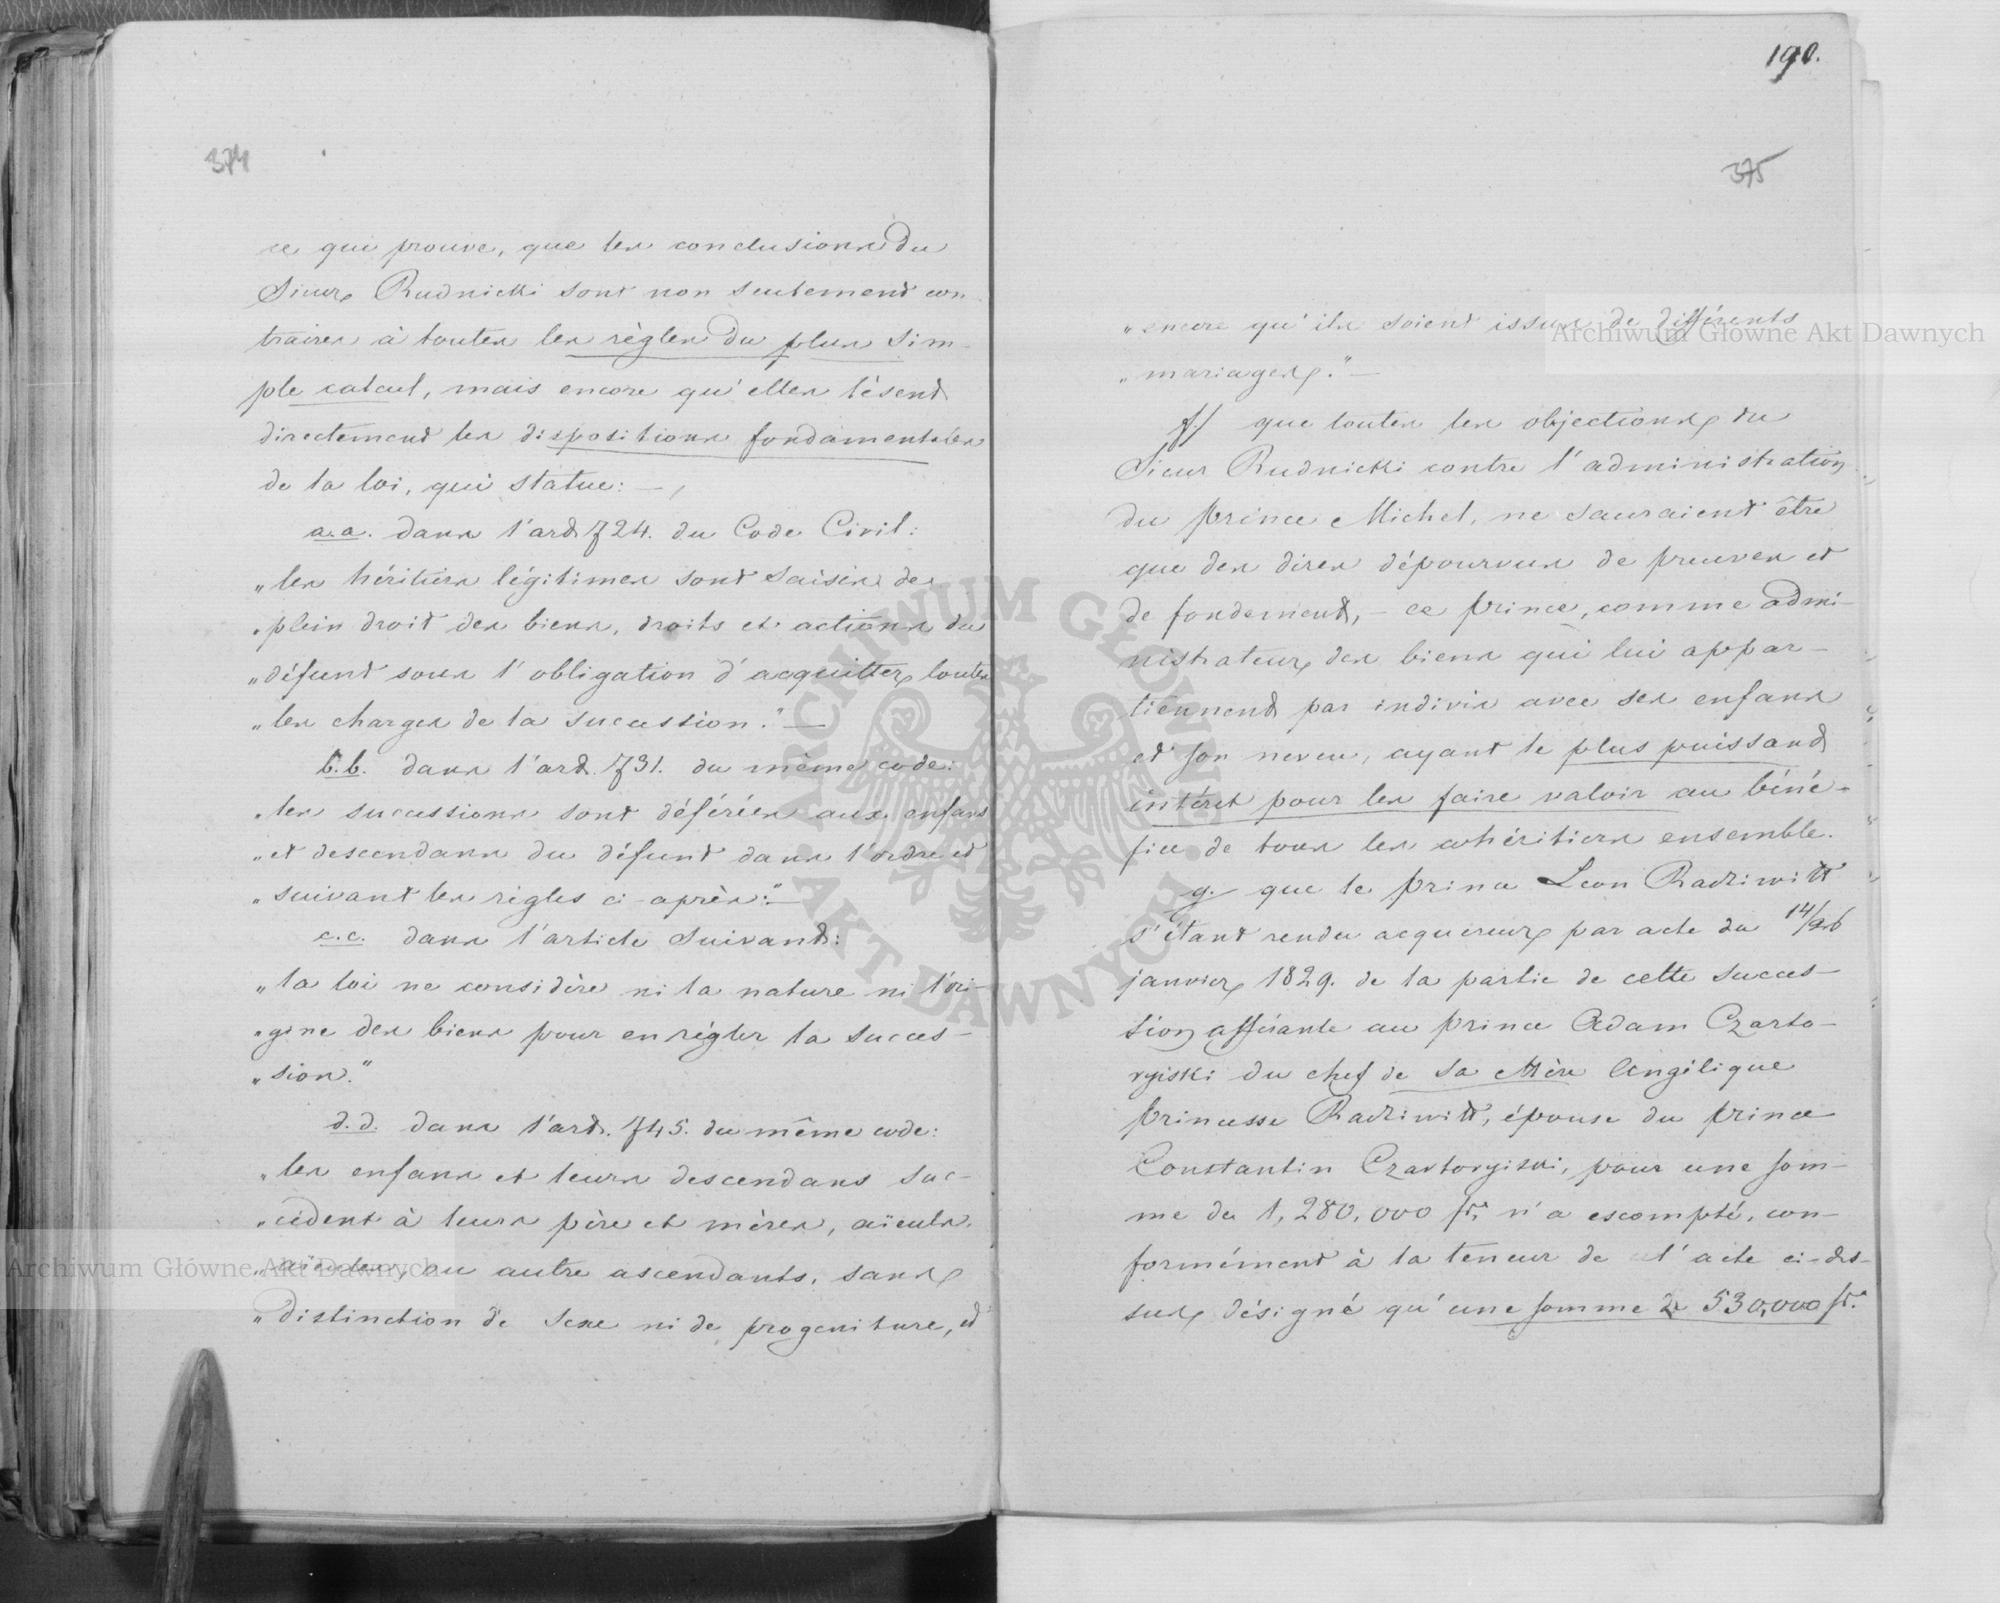 374
ce qui prouve, que les conclusions du
Sieur Rudnicki sont non seulement con-
traires à toutes les règles du plus sim-
ple calcul, mais encore qu'elles lèsent
directement les dispositions fondamentales
de la loi, qui statue: —
a.a. dans l'art. 724. du Code Civil:
„les héritiers légitimes sont saisis de
„plein droit des biens, droits et actions du
„défunt sous l'obligation d'acquitter toutes
„les charges de la succession." —
b.b. dans l'art. 731. du même code:
„les successions sont déférées aux enfans
„et descendans du défunt dans l'ordre et
„suivant les règles ci-après:" —
c.c. dans l'article suivant:
„la loi ne considère ni la nature ni l'ori-
„gine des biens pour en régler la succes-
„sion."
d.d. dans l'art. 745. du même code:
„les enfans et leurs descendans suc-
„cèdent à leurs père et mères, aïeuls,
„aïeules, ou autre ascendants, sans
„distinction de sexe ni de progeniture, et
190.
375
„encore qu'ils soient issus de différents
„mariages." —
f./ que toutes les objections du
Sieur Rudnicki contre l'administration
du prince Michel, ne sauraient être
que des dires dépourvus de preuves et
de fondement, — ce prince, comme admi-
nistrateur des biens qui lui appar-
tiennent par indivis avec ses enfans
et son neveu, ayant le plus puissant
intéret pour les faire valoir au béné-
fice de tous les cohéritiers ensemble.
g./ que le prince Leon Radziwill
s'étant rendu acquereur par acte du 14/26
janvier 1829. de la partie de cette succes-
sion afférante au prince Adam Czarto-
ryiski du chef de sa Mère Angélique
princesse Radziwill, épouse du prince
Constantin Czartoryiski, pour une som-
me de 1,280,000 fr. n'a escompté, con-
formément à la teneur de l'acte ci-des-
sus désigné qu'une somme de 530,000 fr.
Archiwum Główne Akt Dawnych
Archiwum Główne Akt Dawnych
ARCHIWUM GŁÓWNE · AKT DAWNYCH ·